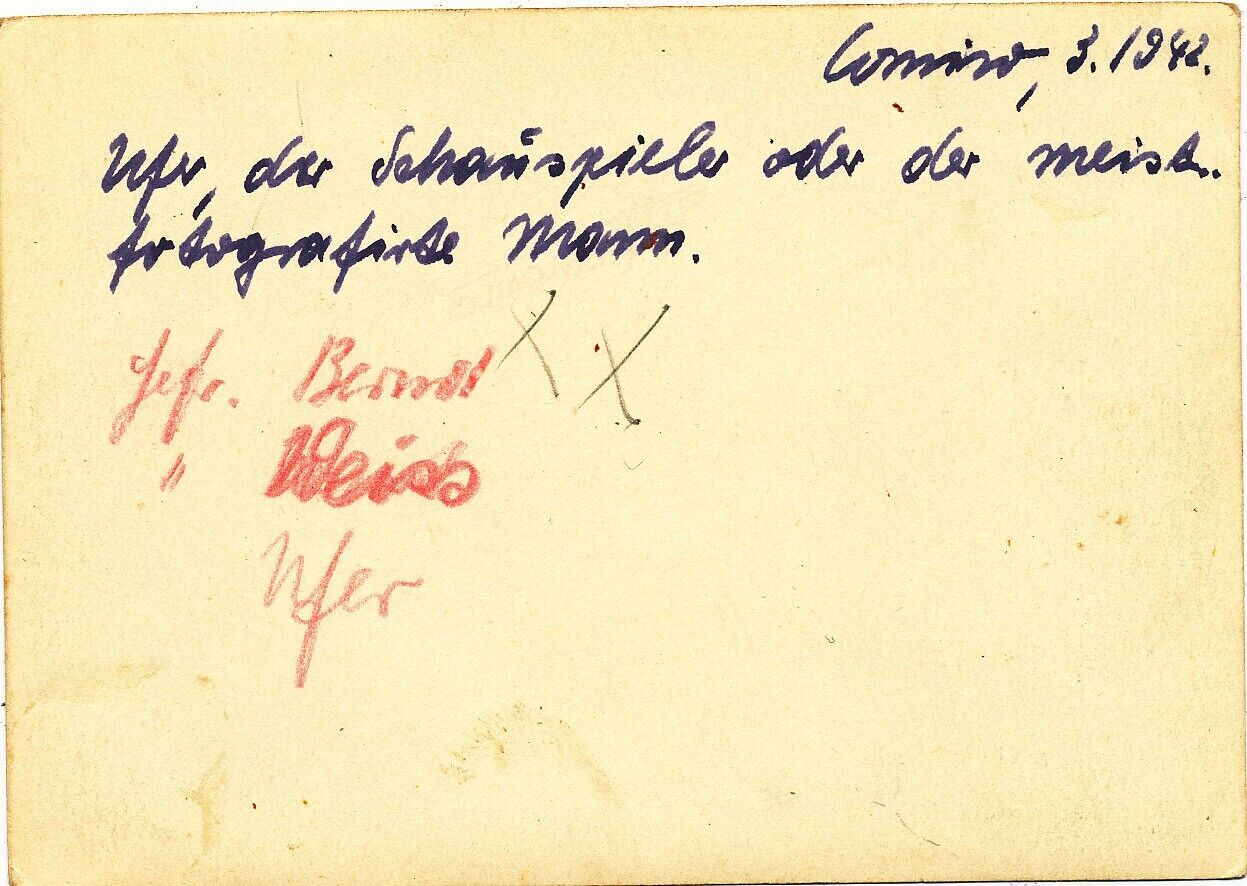 Comiso, 3.1942.
Ufer, der Schauspieler oder der meist.
fotografirte Mann.
Gefr. Berndt
" Weiss
Ufer